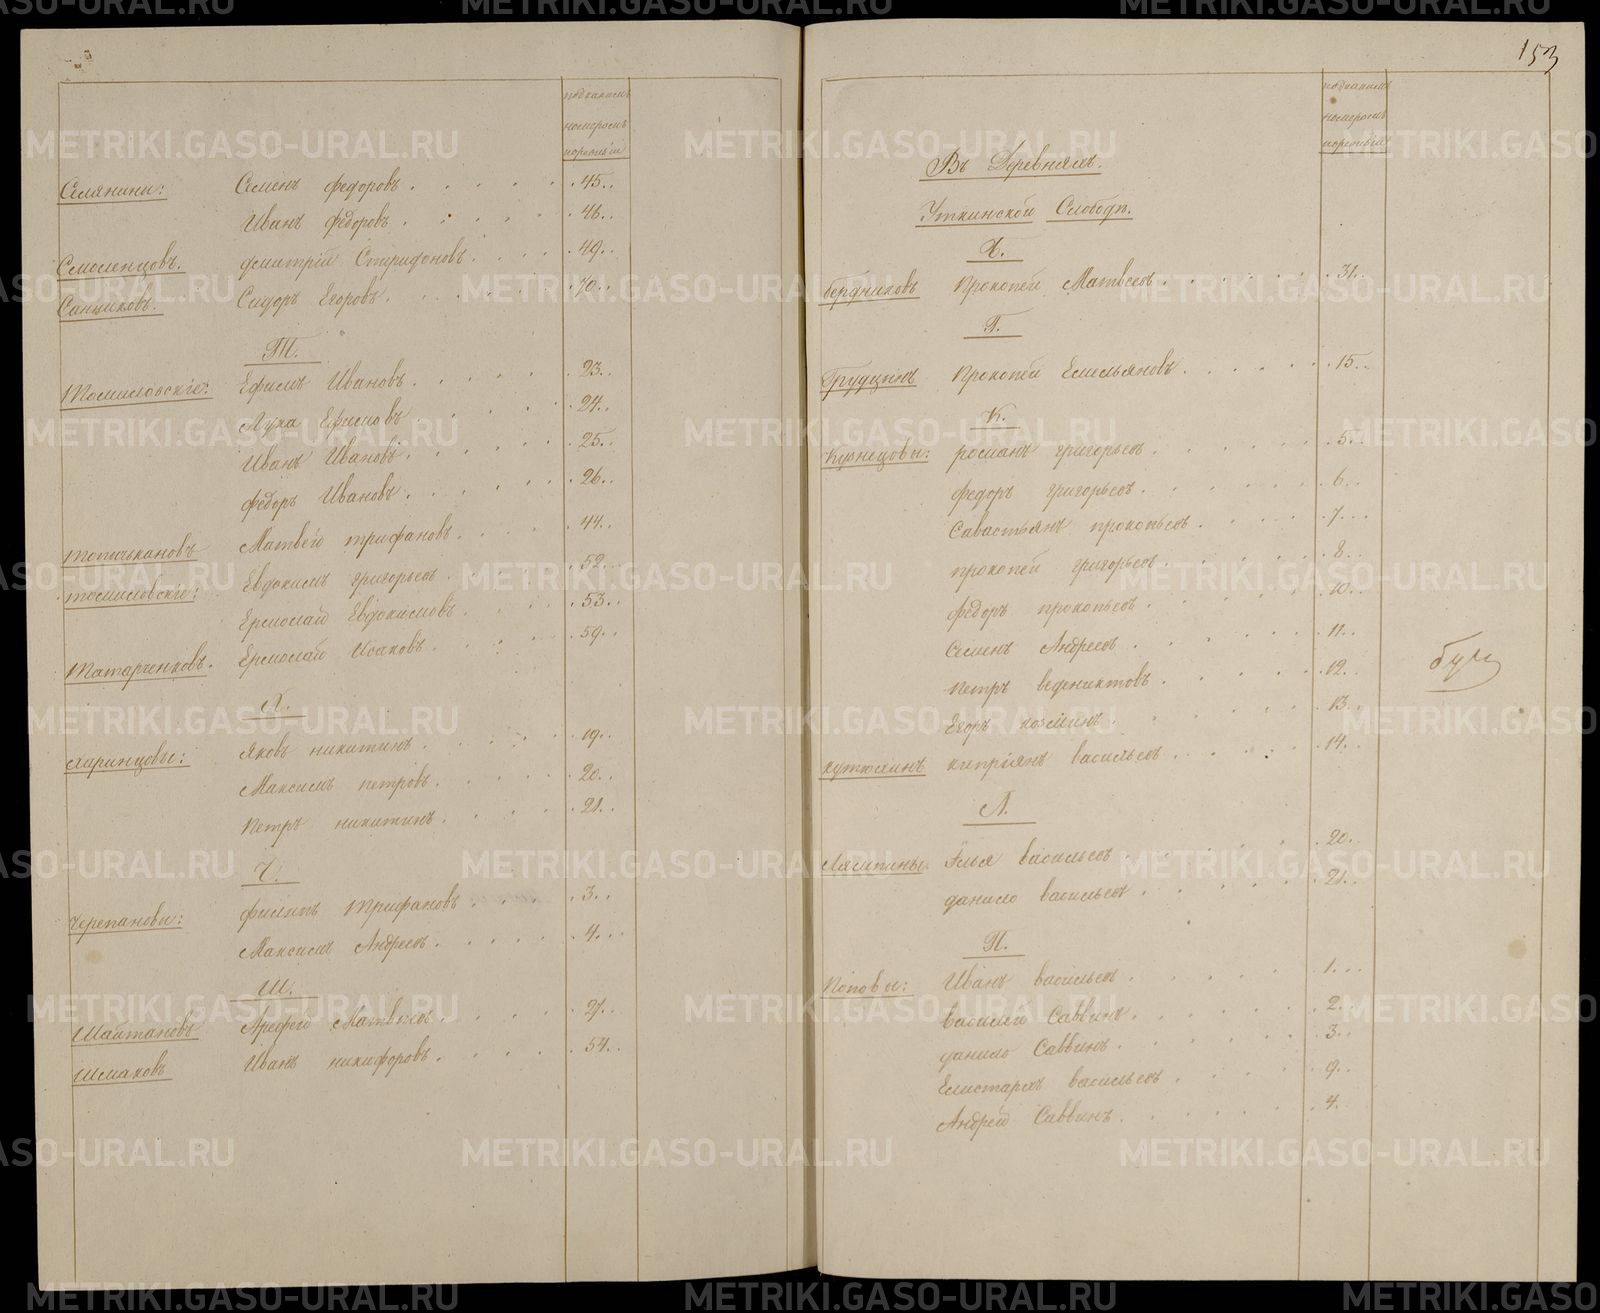 подъ какимъ
номеромъ
поревизіи
Селянины: Семенъ федоровъ 45.
Иванъ федоровъ 46.
Смоленцовъ. дмитрій Спиридоновъ 49.
Санниковъ. Сидоръ Егоровъ 40.
Т.
Томиловскіе: Ефимъ Ивановъ 23.
Лука Ефимовъ 24.
Иванъ Ивановъ 25.
федоръ Ивановъ 26.
Матвей трифановъ 44.
томиловскіе: Евдокимъ григорьевъ 52.
Ермолай Евдокимовъ 53.
Татарченковъ. Ермолай Исаковъ 59.
Х.
Яковъ никитинъ 19.
Максимъ петровъ 20.
Петръ никитинъ 21.
Ч.
Черепановы: филипъ трифановъ 3.
Максимъ Андреевъ 4.
Ш.
Шайтановъ Арефей Матвеевъ 27.
Шмаковъ Иванъ никифоровъ 54.
153
подъ какимъ
номеромъ
поревизіи
Въ Деревняхъ.
Уткинской Слободы.
бердниковъ Прокопей Матвеевъ 31.
Г.
Грудцынъ Прокопей Емельяновъ 15.
К.
Кузнецовы: романъ григорьевъ 5.
федоръ григорьевъ 6.
Савастьянъ прокопьевъ 7.
прокопей григорьевъ 8.
федоръ прокопьевъ 10.
Семенъ Андреевъ 11.
Петръ веденихтовъ 12.
Егоръ козминъ 13.
кутюхинъ кипріянъ васильевъ 14.
Л.
Лямпины Илья васильевъ 20.
данило васильевъ 21.
П.
Поповы: Иванъ васильевъ 1.
василей Саввинъ 2.
данило Саввинъ 3.
Елистархъ васильевъ 9.
Андрей Саввинъ 4.
METRIKI.GASO-URAL.RU